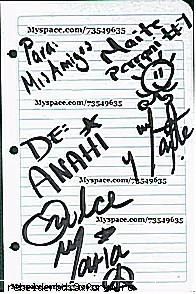 Myspace.com/73549635
Para:
Mis Amigos
Maite
Perroni #1
Myspace.com/73549635
Myspace.com/73549635
DE:
ANAHI
y
Maite
Myspace.com/73549635
Dulce
Maria
Myspace.com/73549635